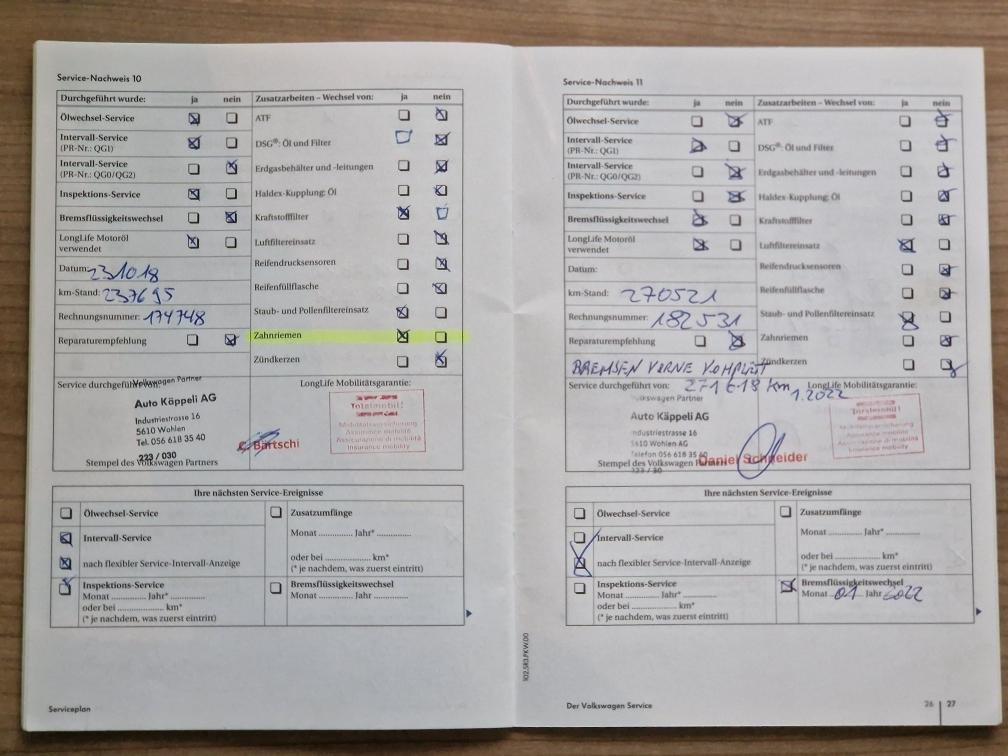 Service-Nachweis 10
Durchgeführt wurde: ja nein Zusatzarbeiten – Wechsel von: ja nein
Ölwechsel-Service
Intervall-Service
(PR-Nr.: QG1)
Intervall-Service
(PR-Nr.: QG0/QG2)
Inspektions-Service
Bremsflüssigkeitswechsel
LongLife Motoröl
verwendet
Datum: 231018
km-Stand: 237695
Rechnungsnummer: 174748
Reparaturempfehlung
ATF
DSG®: Öl und Filter
Erdgasbehälter und -leitungen
Haldex-Kupplung: Öl
Kraftstofffilter
Luftfiltereinsatz
Reifendrucksensoren
Reifenfüllflasche
Staub- und Pollenfiltereinsatz
Zahnriemen
Zündkerzen
Service durchgeführt von:
Volkswagen Partner
Auto Käppeli AG
Industriestrasse 16
5610 Wohlen
Tel. 056 618 35 40
223 / 030
Stempel des Volkswagen Partners
Bärtschi
LongLife Mobilitätsgarantie:
Totalmobil!
Mobilitätsversicherung
Assurance mobilité
Assicurazione di mobilità
Insurance mobility
Ihre nächsten Service-Ereignisse
Ölwechsel-Service
Intervall-Service
nach flexibler Service-Intervall-Anzeige
Inspektions-Service
Monat ............ Jahr* ............
oder bei ............ km*
(* je nachdem, was zuerst eintritt)
Zusatzumfänge
Monat ............ Jahr* ............
oder bei ............ km*
(* je nachdem, was zuerst eintritt)
Bremsflüssigkeitswechsel
Monat ............ Jahr ............
Serviceplan
Service-Nachweis 11
Durchgeführt wurde: ja nein Zusatzarbeiten – Wechsel von: ja nein
Ölwechsel-Service
Intervall-Service
(PR-Nr.: QG1)
Intervall-Service
(PR-Nr.: QG0/QG2)
Inspektions-Service
Bremsflüssigkeitswechsel
LongLife Motoröl
verwendet
Datum:
km-Stand: 270521
Rechnungsnummer: 182531
Reparaturempfehlung
BREMSEN VORNE KOMPLETT
271618 km
1.2022
ATF
DSG®: Öl und Filter
Erdgasbehälter und -leitungen
Haldex-Kupplung: Öl
Kraftstofffilter
Luftfiltereinsatz
Reifendrucksensoren
Reifenfüllflasche
Staub- und Pollenfiltereinsatz
Zahnriemen
Zündkerzen
Service durchgeführt von:
Volkswagen Partner
Auto Käppeli AG
Industriestrasse 16
5610 Wohlen AG
Telefon 056 618 35 40
Stempel des Volkswagen Partners
Daniel Schneider
LongLife Mobilitätsgarantie:
Totalmobil!
Mobilitätsversicherung
Assurance mobilité
Assicurazione di mobilità
Insurance mobility
Ihre nächsten Service-Ereignisse
Ölwechsel-Service
Intervall-Service
nach flexibler Service-Intervall-Anzeige
Inspektions-Service
Monat ............ Jahr* ............
oder bei ............ km*
(* je nachdem, was zuerst eintritt)
Zusatzumfänge
Monat ............ Jahr* ............
oder bei ............ km*
(* je nachdem, was zuerst eintritt)
Bremsflüssigkeitswechsel
Monat 01 Jahr 2022
102.5R3.PKW.00
Der Volkswagen Service
26 27